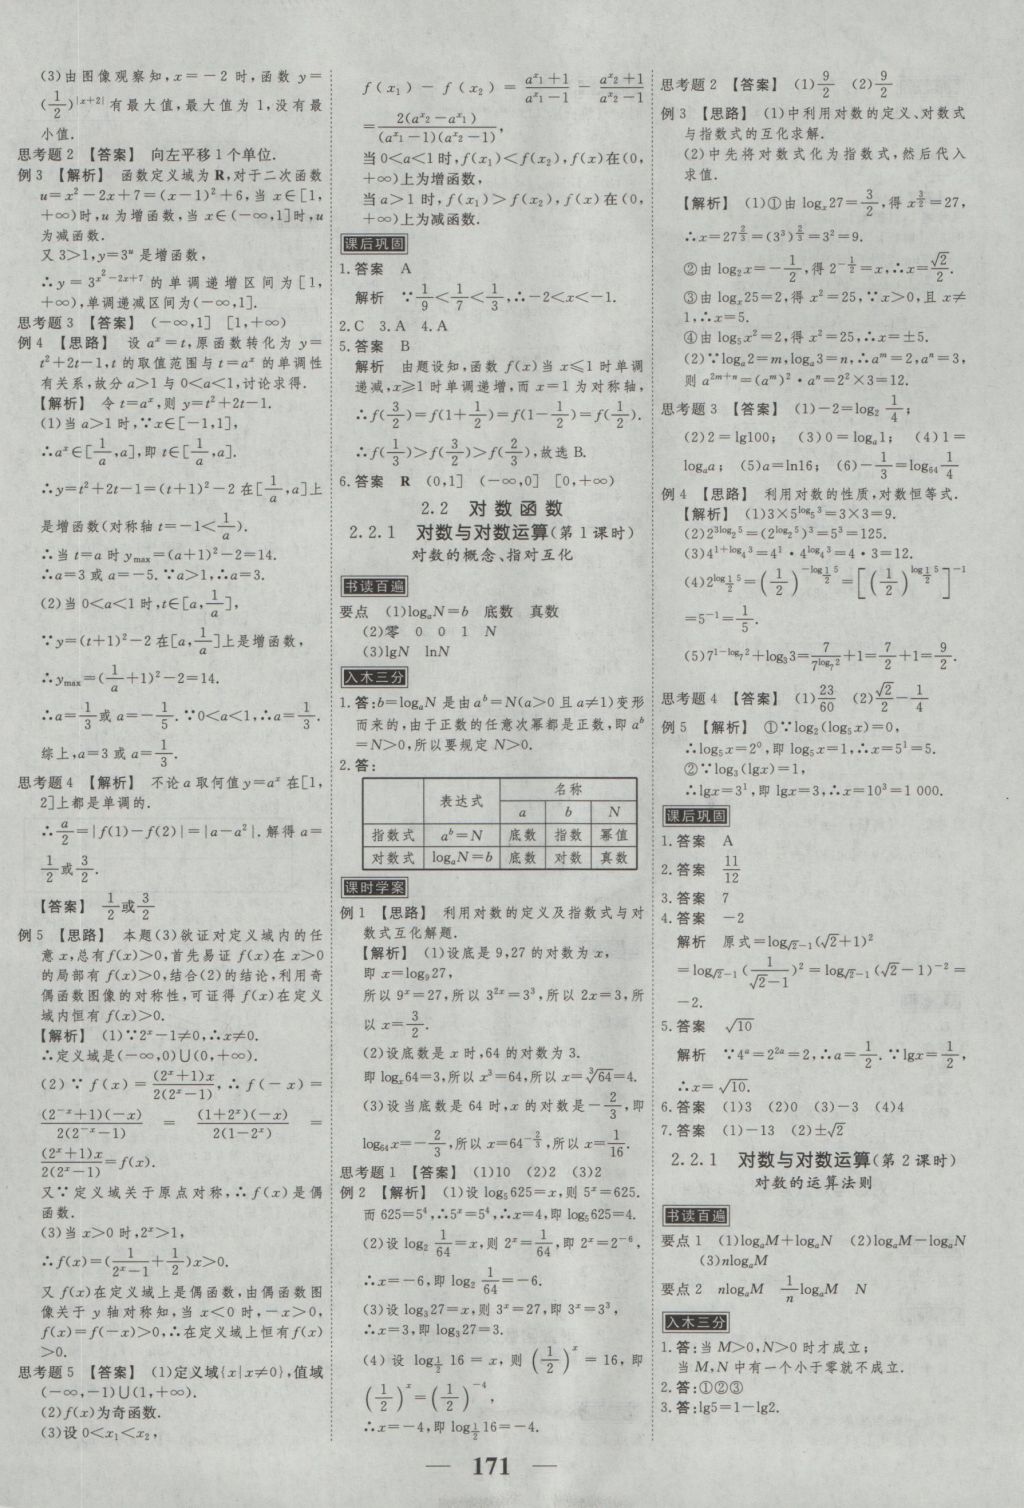 (3)由图像观察知,x=-2时,函数 y=
(1/2)^|x+2| 有最大值,最大值为 1,没有最
小值.
思考题2 【答案】 向左平移1个单位.
例3 【解析】 函数定义域为R,对于二次函数
u=x²-2x+7=(x-1)²+6,当 x∈[1,
+∞)时,u 为增函数,当 x∈(-∞,1]时,u
为减函数.
又3>1,y=3^u 是增函数,
∴y=3^(x²-2x+7) 的单调递增区间为[1,
+∞),单调递减区间为(-∞,1].
思考题3 【答案】 (-∞,1] [1,+∞)
例4 【思路】 设 a^x=t,原函数转化为 y=
t²+2t-1,t 的取值范围与 t=a^x 的单调性
有关系,故分 a>1 与 0<a<1,讨论求得.
【解析】 令 t=a^x,则 y=t²+2t-1.
(1)当 a>1 时,∵x∈[-1,1],
∴a^x∈[1/a,a],即 t∈[1/a,a].
∴y=t²+2t-1=(t+1)²-2在[1/a,a]上
是增函数(对称轴 t=-1<1/a).
∴当 t=a 时 y_max=(a+1)²-2=14.
∴a=3 或 a=-5.∵a>1,∴a=3.
(2)当 0<a<1 时,t∈[a,1/a],
∵y=(t+1)²-2在[a,1/a]上是增函数,
∴y_max=(1/a+1)²-2=14.
∴a=1/3或 a=-1/5.∵0<a<1,∴a=1/3.
综上,a=3 或 a=1/3.
思考题4 【解析】 不论 a 取何值 y=a^x 在[1,
2]上都是单调的.
∴a/2=|f(1)-f(2)|=|a-a²|.解得 a=
1/2或3/2.
【答案】 1/2或3/2
例5 【思路】 本题(3)欲证对定义域内的任
意 x,总有f(x)>0,首先易证 f(x)在 x>0
的局部有 f(x)>0,结合(2)的结论,利用奇
偶函数图像的对称性,可证得 f(x)在定义
域内恒有 f(x)>0.
【解析】 (1)∵2^x-1≠0,∴x≠0.
∴定义域是(-∞,0)∪(0,+∞).
(2)∵f(x)=(2^x+1)x/2(2^x-1),∴f(-x)=
(2^-x+1)(-x)/2(2^-x-1) = (1+2^x)(-x)/2(1-2^x) =
(2^x+1)x/2(2^x-1)=f(x).
又∵定义域关于原点对称,∴f(x)是偶
函数.
(3)当 x>0 时,2^x>1,
∴f(x)=(1/(2^x-1)+1/2)x>0.
又 f(x)在定义域上是偶函数,由偶函数图
像关于 y 轴对称知,当 x<0 时,-x>0,
f(x)=f(-x)>0,∴在定义域上恒有f(x)
>0.
思考题5 【答案】 (1)定义域{x|x≠0},值域
(-∞,-1)∪(1,+∞).
(2)f(x)为奇函数.
(3)设 0<x₁<x₂,
f(x₁)-f(x₂)=(a^x₁+1)/(a^x₁-1) - (a^x₂+1)/(a^x₂-1)
=2(a^x₂-a^x₁)/(a^x₁-1)(a^x₂-1),
当0<a<1时,f(x₁)<f(x₂),f(x)在(0,
+∞)上为增函数,
当 a>1 时,f(x₁)>f(x₂),f(x)在(0,
+∞)上为减函数.
课后巩固
1.答案 A
解析 ∵1/9<1/7<1/3,∴-2<x<-1.
2.C 3.A 4.A
5.答案 B
解析 由题设知,函数 f(x)当 x⩽1 时单调
递减,x⩾1 时单调递增,而 x=1 为对称轴,
∴f(3/2)=f(1+1/2)=f(1-1/2)=f(1/2).
∴f(1/3)>f(3/2)>f(2/3),故选 B.
6.答案 R (0,1] (-∞,0] [0,+∞)
2.2 对数函数
2.2.1 对数与对数运算(第1课时)
对数的概念、指对互化
书读百遍
要点 (1)logₐN=b 底数 真数
(2)零 0 0 1 N
(3)lgN lnN
入木三分
1.答:b=logₐN 是由 a^b=N(a>0 且 a≠1)变形
而来的,由于正数的任意次幂都是正数,即 a^b
=N>0,所以要规定 N>0.
2.答:
表达式 名称
a b N
指数式 a^b=N 底数 指数 幂值
对数式 logₐN=b 底数 对数 真数
课时学案
例1 【思路】 利用对数的定义及指数式与对
数式互化解题.
【解析】 (1)设底是 9,27 的对数为 x,
即 x=log₉27,
所以 9^x=27,所以 3^2x=3³,所以 2x=3,所
以 x=3/2.
(2)设底数是 x 时,64 的对数为 3.
即 logₓ64=3,所以 x³=64,所以 x=∛64=4.
(3)设当底数是 64 时,x 的对数是-2/3,即
log₆₄x=-2/3,所以 x=64^(-2/3),所以 x=1/16.
思考题1 【答案】 (1)10 (2)2 (3)2
例2 【解析】 (1)设 log₅625=x,则 5^x=625.
而 625=5⁴,∴5^x=5⁴,∴x=4,即 log₅625=4.
(2)设 log₂ 1/64=x,则 2^x=1/64,即 2^x=2⁻⁶,
∴x=-6,即 log₂ 1/64=-6.
(3)设 log₃27=x,则 3^x=27,即 3^x=3³,
∴x=3,即 log₃27=3.
(4)设 log_(1/2) 16=x,则 (1/2)^x=16,即
(1/2)^x=(1/2)^-4,
∴x=-4,即 log_(1/2)16=-4.
思考题2 【答案】 (1)9/2 (2)9/2
例3 【思路】 (1)中利用对数的定义、对数式
与指数式的互化求解.
(2)中先将对数式化为指数式,然后代入
求值.
【解析】 (1)①由 logₓ27=3/2,得 x^(3/2)=27,
∴x=27^(2/3)=(3³)^(2/3)=3²=9.
②由 log₂x=-1/2,得 2^(-1/2)=x,∴x=√2/2.
③由 logₓ25=2,得 x²=25,∵x>0,且 x≠
1,∴x=5.
④由 log₅x²=2,得 x²=25,∴x=±5.
(2)∵logₐ2=m,logₐ3=n,∴a^m=2,a^n=3,
则 a^(2m+n)=(a^m)²·a^n=2²×3=12.
思考题3 【答案】 (1)-2=log₂ 1/4;
(2)2=lg100; (3)0=logₐ1; (4)1=
logₐa; (5)a=ln16; (6)-1/3=log₆₄ 1/4
例4 【思路】 利用对数的性质,对数恒等式.
【解析】 (1)3×5^(log₅3)=3×3=9.
(2)2^(3log₂5)=(2^(log₂5))³=5³=125.
(3)4^(1+log₄3)=4¹·4^(log₄3)=4·3=12.
(4)2^(log_(1/2)5)=(1/2)^(-log_(1/2)5)=[(1/2)^(log_(1/2)5)]^-1
=5⁻¹=1/5.
(5)7^(1-log₇2)+log₃3=7/7^(log₇2)+1=7/2+1=9/2.
思考题4 【答案】 (1)23/60 (2)√2/2-1/4
例5 【解析】 ①∵log₂(log₅x)=0,
∴log₅x=2⁰,即 log₅x=1,∴x=5¹=5.
②∵log₃(lgx)=1,
∴lgx=3¹,即 lgx=3,∴x=10³=1 000.
课后巩固
1.答案 A
2.答案 11/12
3.答案 7
4.答案 -2
解析 原式=log_(√2-1)(√2+1)²
=log_(√2-1)(1/(√2-1))²=log_(√2-1)(√2-1)⁻²=
-2.
5.答案 √10
解析 ∵4^a=2^2a=2,∴a=1/2.∵lgx=1/2,
∴x=√10.
6.答案 (1)3 (2)0 (3)-3 (4)4
7.答案 (1)-13 (2)±√2
2.2.1 对数与对数运算(第2课时)
对数的运算法则
书读百遍
要点1 (1)logₐM+logₐN (2)logₐM-logₐN
(3)nlogₐM
要点2 nlogₐM 1/n logₐM N
入木三分
1.答:当 M>0,N>0 时才成立;
当 M,N 中有一个小于零就不成立.
2.答:①②③
3.答:lg5=1-lg2.
— 171 —